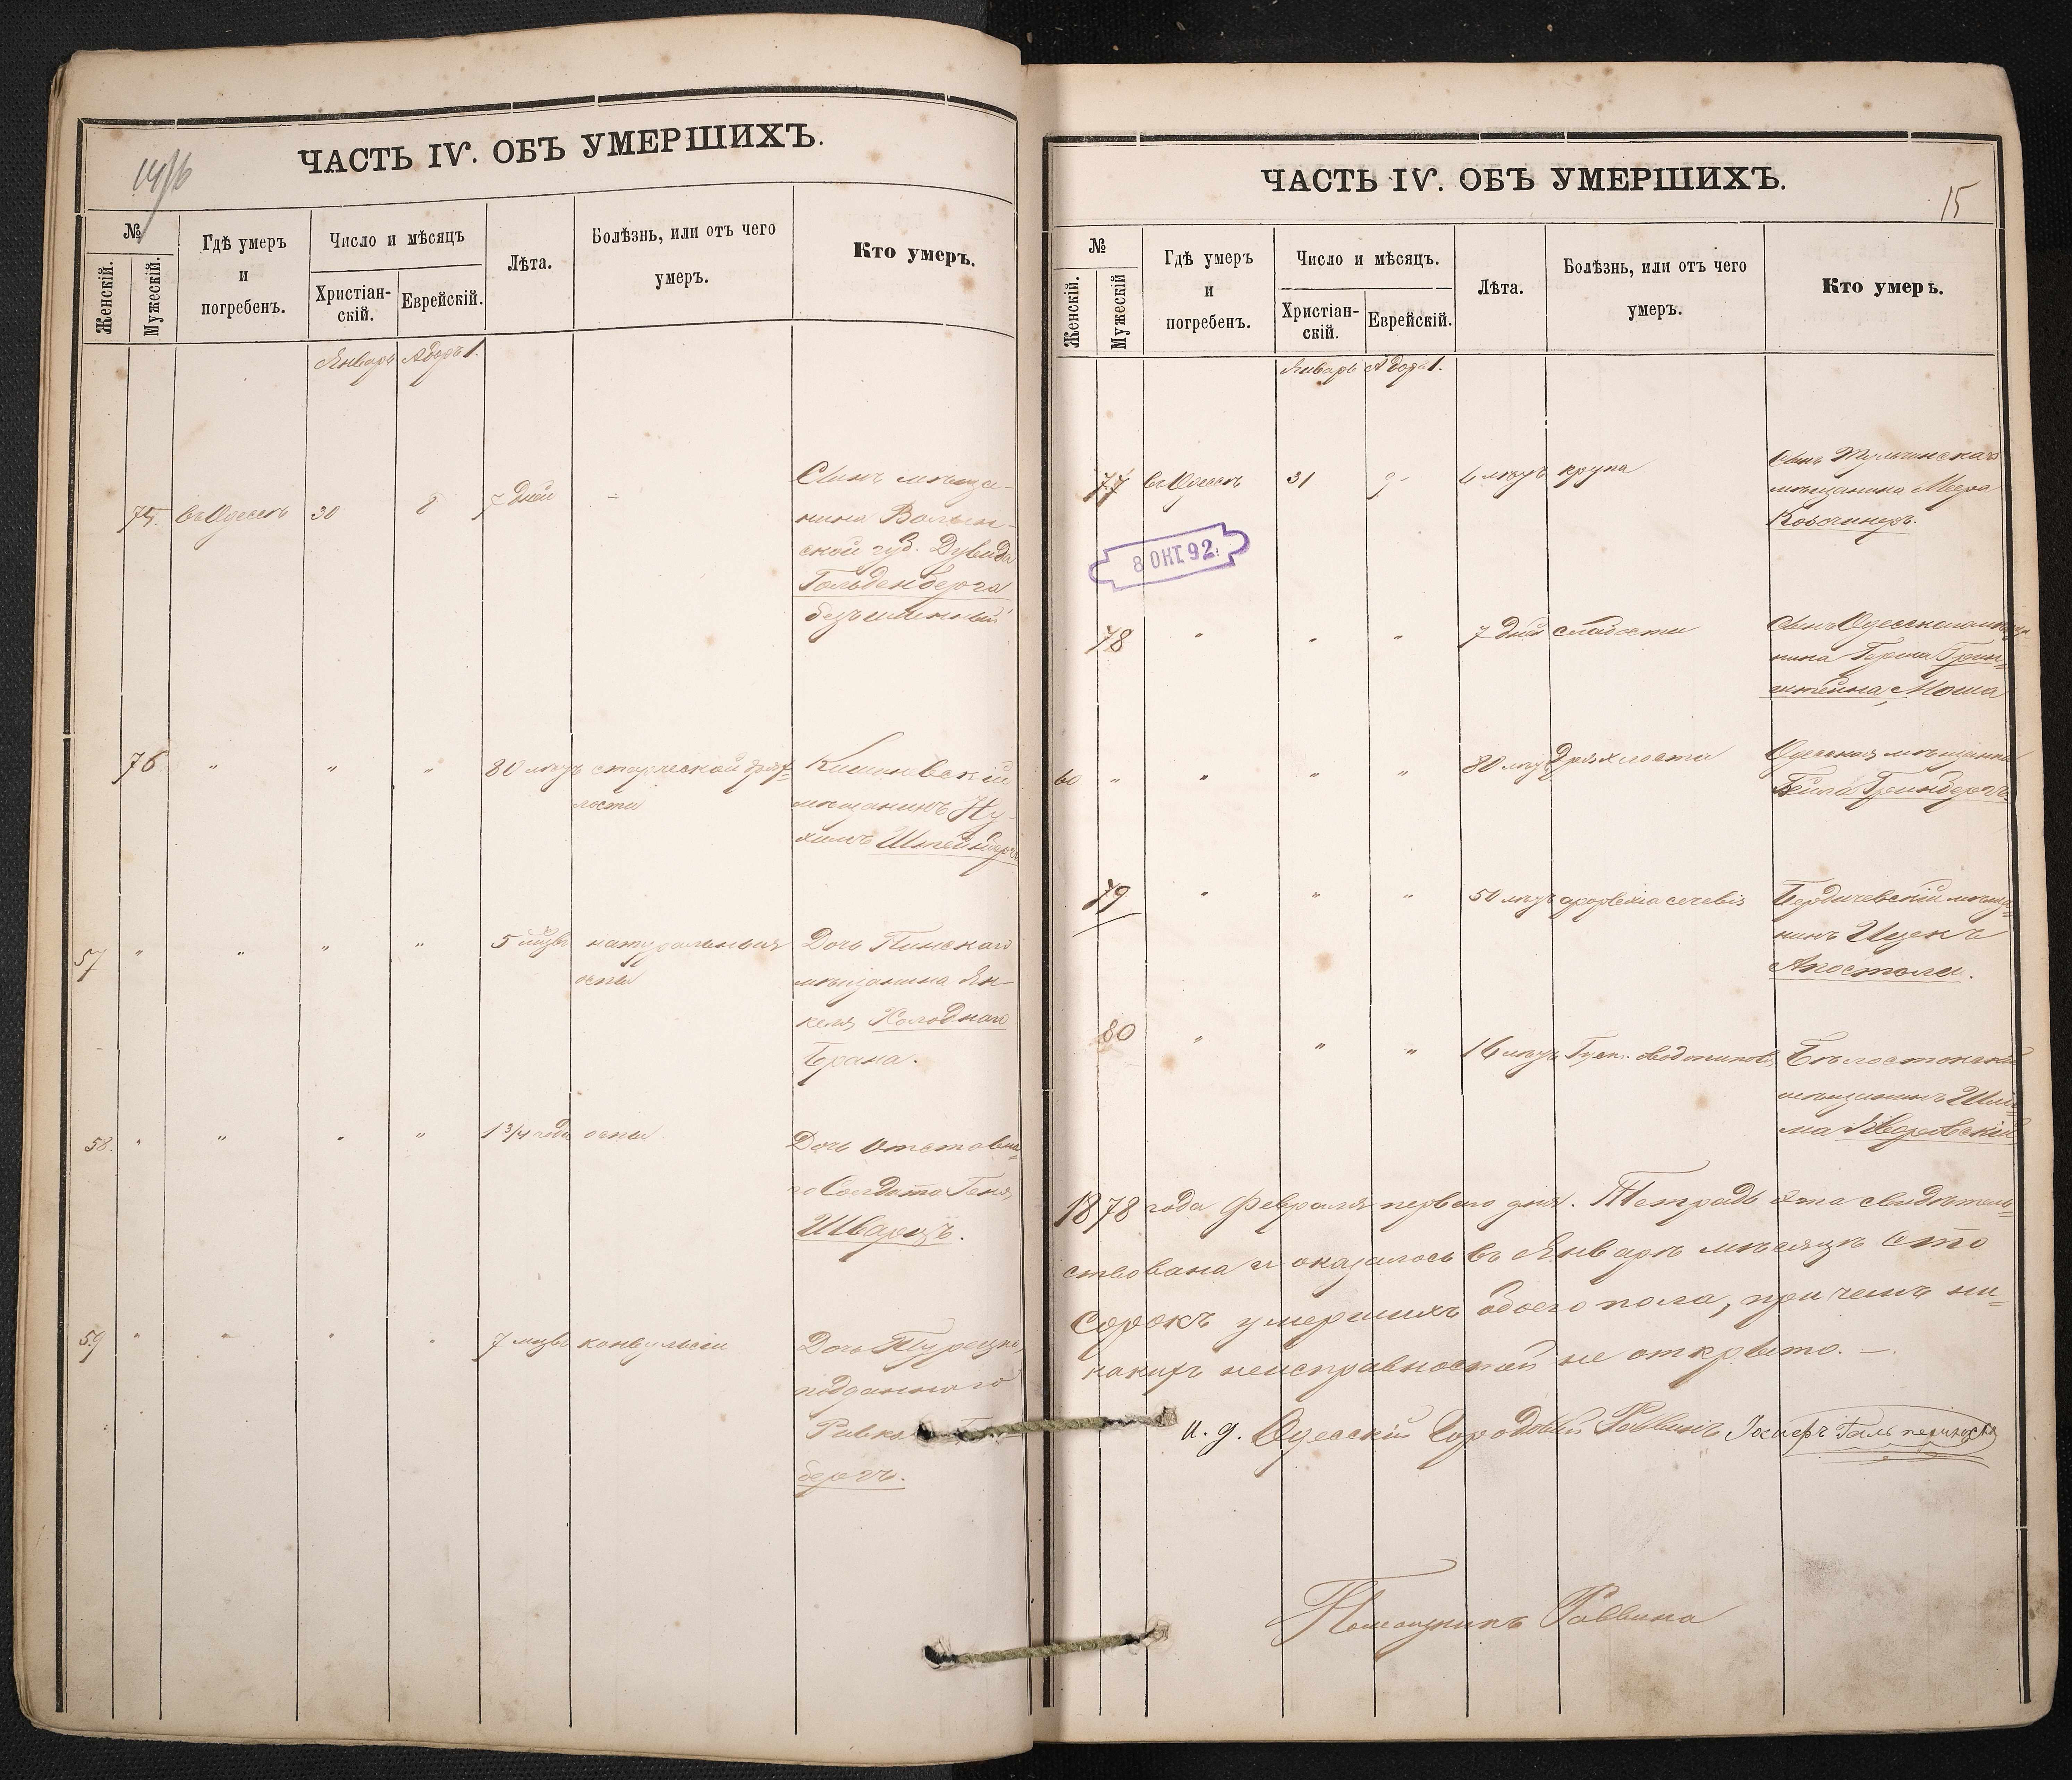 ЧАСТЬ IV. ОБЪ УМЕРШИХЪ.
№
Женскій.
Мужескій.
Гдѣ умеръ
и
погребенъ.
Число и мѣсяцъ
Христіан-
скій.
Еврейскій.
Лѣта.
Болѣзнь, или отъ чего
умеръ.
Кто умеръ.
Январь Адоръ 1.
75. въ Одессѣ 30 8 7 дней -
Сынъ мѣща-
нина Волын-
ской губ. Дувида
Гольденберга
безъименный
76 " " " 80 лѣтъ старческой дрях-
лости
Кишиневскій
мѣщанинъ Ну-
химъ Штейнбергъ
57 " " " " 5 натуральныя
оспы
Дочь Пинскаго
мѣщанина Ян-
келя Холоднаго
Брана.
58. " " " " 1 3/4 года оспы
Дочь отставна-
го Солдата Геня
Шварцъ.
59 " " " " 7 конвульсіи
Дочь Турецко
подданного
Ривка
бергъ.
ЧАСТЬ IV. ОБЪ УМЕРШИХЪ.
15
№
Женскій.
Мужескій
Гдѣ умеръ
и
погребенъ.
Число и мѣсяцъ.
Христіан-
скій.
Еврейскій.
Лѣта.
Болѣзнь, или отъ чего
умеръ.
Кто умеръ.
Январь Адоръ 1.
77 въ Одессѣ 31 9 6 лѣтъ крупа
Сынъ Тульчинскаго
мѣщанина Меера
8 ОКТ. 92
78 " " " 7 дней слабости
Сынъ Одесскаго мѣща-
нина Герша Грин-
штейна, Моша
60 " " " " 80 лѣтъ дряхлости
Одесская мѣщанка
Бейла Гринбергъ
79 " " " 50 лѣтъ
Бердичевскій мѣща-
нинъ Ицекъ
Апостоли.
80 " " " 16 лѣтъ
Бѣлостокскій
мѣщанинъ Шлі-
ма
1878 года Февраля перваго дня. Тетрадь эта свидѣтель-
ствована и оказалось въ Январѣ мѣсяцѣ Сто
Сорокъ умершихъ обоего пола, при чемъ ни-
какихъ неисправностей не открыто. —
и. д. Одесскій Городовой Раввинъ Іосифъ Гальперинъ
Помощникъ Раввина